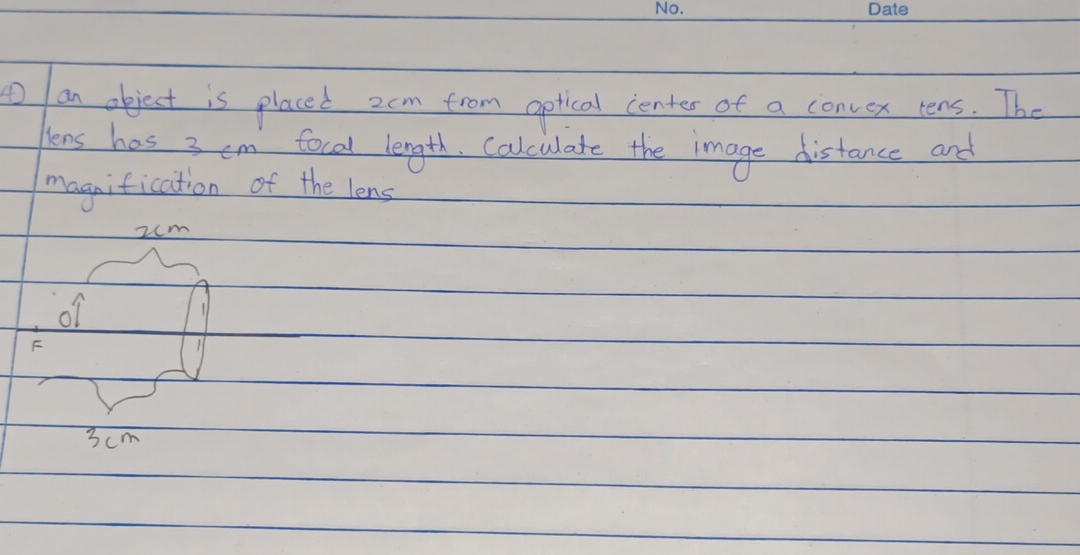 No. Date
4) an object is placed 2cm from optical center of a convex lens. The
lens has 3 cm focal length. Calculate the image distance and
magnification of the lens
2cm
O
F
3cm